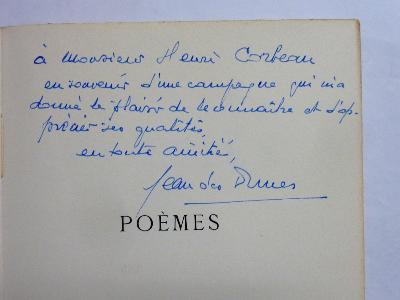 à Monsieur Henri Corbeau
en souvenir d'une campagne qui m'a
donné le plaisir de le connaître et d'ap-
précier ses qualités,
en toute amitié,
Jean des
POÈMES